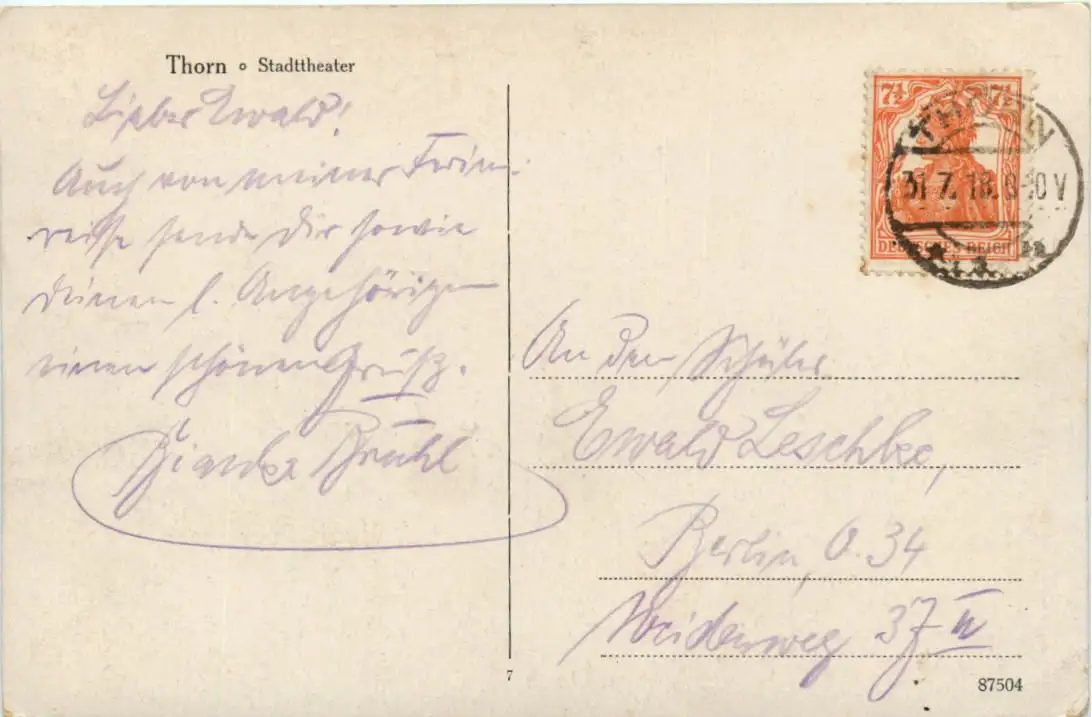 Thorn ∘ Stadttheater
Lieber Ewald!
Auch von meiner Ferien-
reise sende Dir sowie
Deinen l. Angehörigen
einen schönen Gruß.
Brühl
7½ 7½
THORN
31.7.18.8-10V
DEUTSCHES REICH
An den Schüler
Ewald Leschke,
Berlin, O. 34
Weidenweg 37 II
7
87504